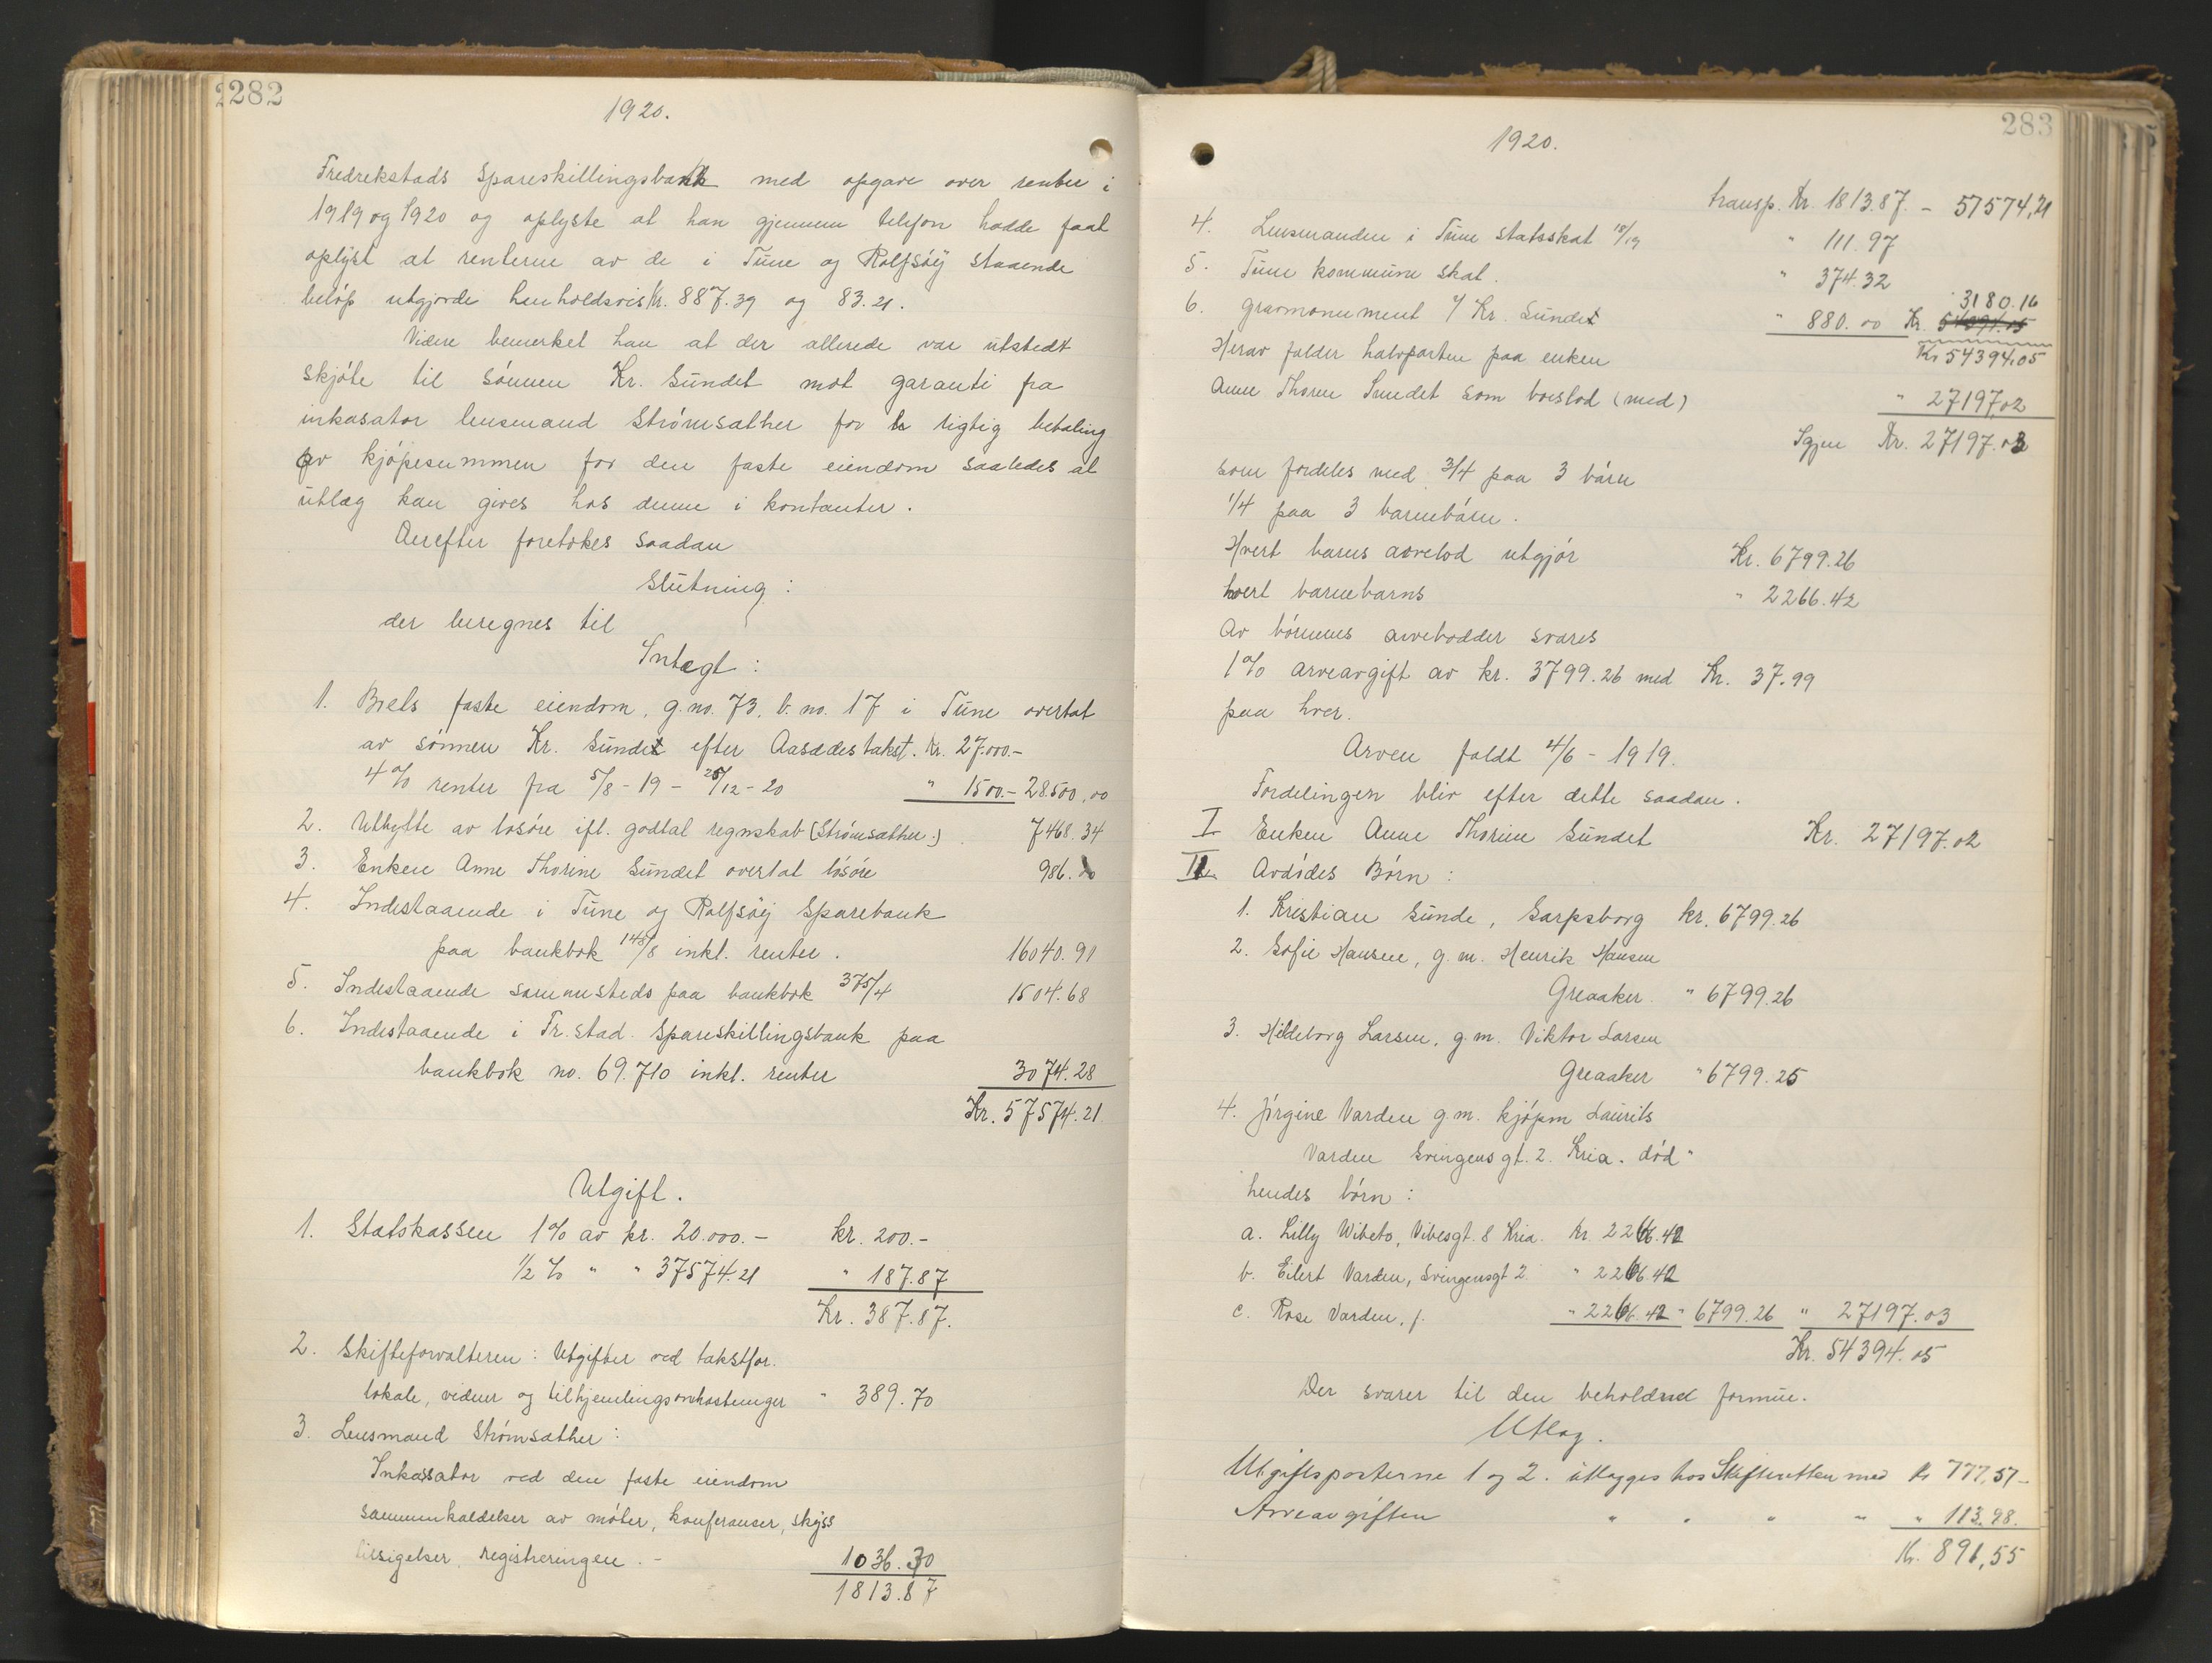 282
1920.
Fredrekstads Spareskillingsbank med opgave over renter i
1919 og 1920 og oplyste at han gjennem telefon hadde faat
oplyst at renterne av de i Tune og Rolfsøy staaende
beløp utgjorde henholdsvis kr. 887.39 og 83.21.
Videre bemerket han at der allerede var utstedt
skjøte til sønnen Kr. Sundet mot garanti fra
inkasator lensmand Strømsæther for rigtig betaling
av kjøpesummen for den faste eiendom saaledes at
utlæg kan gives hos denne i kontanter.
Derefter foretokes saadan
Slutning:
der beregnes til
Intægt:
1. Boets faste eiendom, g.no. 73, b.no. 17 i Tune overtat
av sønnen Kr. Sundet efter Aasædestakst. kr. 27.000.-
4% renter fra 5/8-19 - 20/12-20 " 1500.- 28.500,00
2. Utbytte av løsøre ifl. godtat regnskab (Strømsæther.) 7468.34
3. Enken Anne Thorine Sundet overtat løsøre 986.00
4. Indestaaende i Tune og Rolfsøy Sparebank
paa bankbok 148/8 inkl. renter. 16040.91
5. Indestaaende sammesteds paa bankbok 375/4 1504.68
6. Indestaaende i Fr.stad Spareskillingsbank paa
bankbok no. 69.710 inkl. renter 3074.28
Kr. 57574.21
Utgift.
1. Statskassen 1% av kr. 20.000.- kr. 200.-
1/2 % " " 37574.21 " 187.87
Kr. 387.87.
2. Skifteforvalteren: Utgifter ved takstfor.
lokale, vidner og tilhjemlingsomkostninger " 389.70
3. Lensmand Strømsæther:
Inkassator ved den faste eiendom
sammenkaldelser av møter, konferanser, skyss
tilsigelser, registreringen.- 1036.30
1813.87
283
1920.
transp. Kr. 1813.87. - 57574,21
4. Lensmanden i Tune statsskat 18/19 " 111.97
5. Tune kommune skat. " 374.32
3180.16
6. Gravmonument v/ Kr. Sundet " 880.00 Kr. 54394.05
Kr 54394,05
Herav falder halvparten paa enken
Anne Thorine Sundet som boeslod (med) " 27197,02
Igjen Kr. 27197.03
som fordeles med 3/4 paa 3 børn
1/4 paa 3 barnebørn.
Hvert barns arvelod utgjør Kr. 6799.26
hvert barnebarns " 2266.42
Av børnenes arvelodder svares
1% arveavgift av kr. 3799.26 med Kr. 37.99
paa hver.
Arven faldt 4/6 - 1919.
Fordelingen blir efter dette saadan.
I Enken Anne Thorine Sundet Kr. 27197.02
II. Avdødes Børn:
1. Kristian Sunde, Sarpsborg kr. 6799.26
2. Sofie Hansen, g.m. Henrik Hansen
Greaaker " 6799.26
3. Hildeborg Larsen, g.m. Viktor Larsen
Greaaker " 6799.25
4. Jørgine Varden g.m. kjøpm Laurits
Varden Svingens gt. 2. Kria. død"
hendes børn:
a. Lilly Wibeto, Vibesgt. 8 Kria. Kr. 2266.42
b. Eilert Varden, Svingensgt 2. " 2266.42
c. Rose Varden, f. " 2266.42 " 6799.26 " 27197.03
Kr. 54394.05
Der svarer til den beholdne formue.
Utlæg.
Utgiftsposterne 1 og 2. utlægges hos Skifteretten med Kr 777,57-
Arveavgiften " " " " " 113.98.
Kr. 891,55